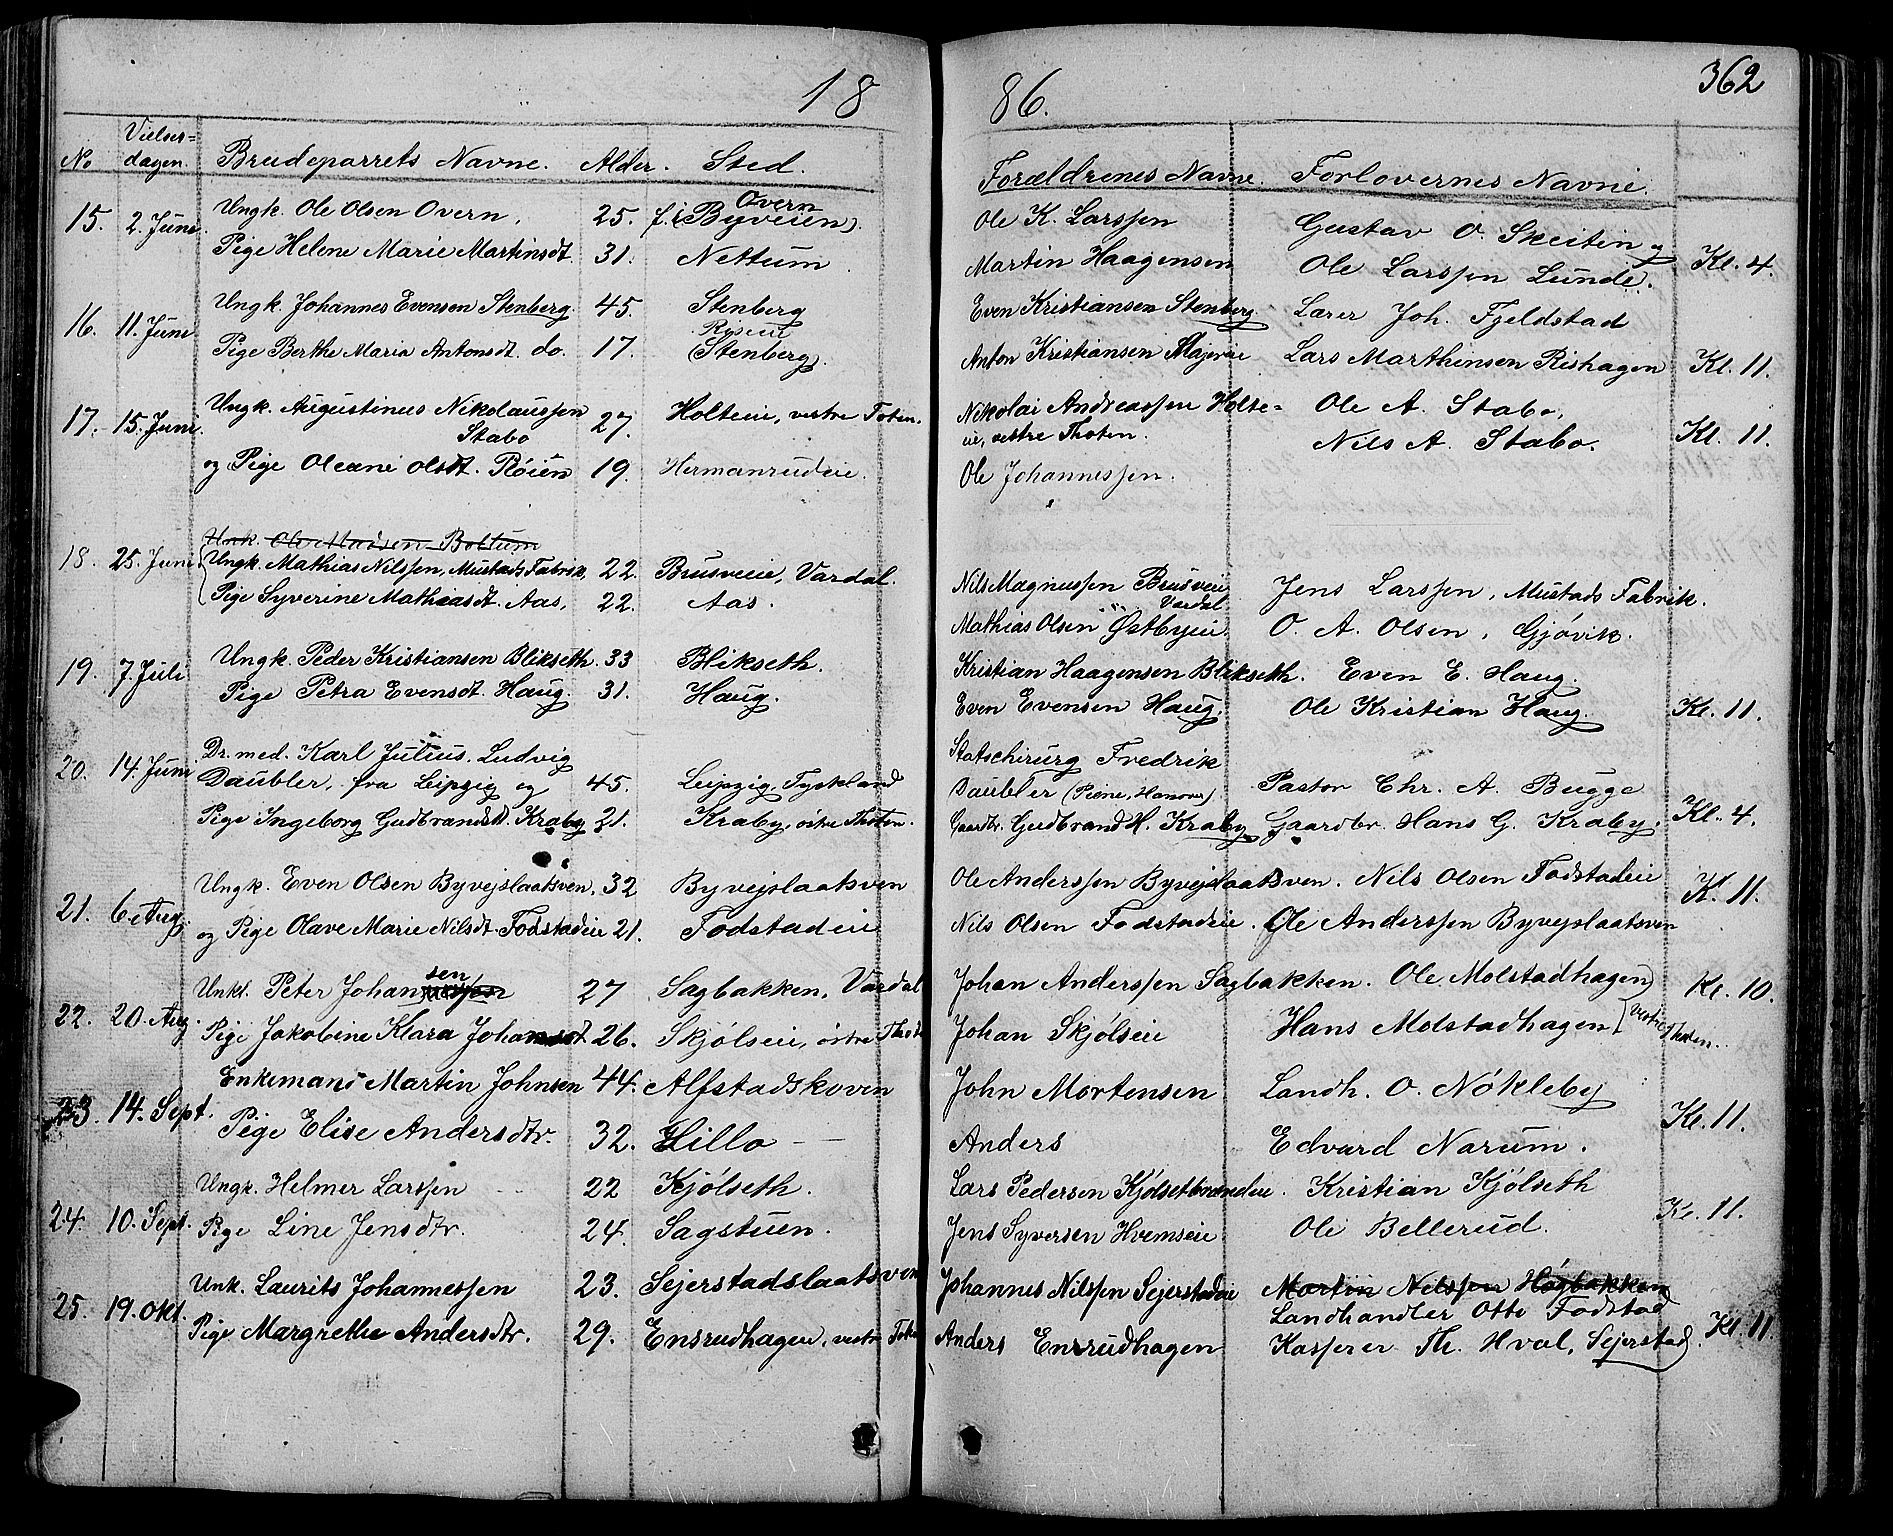 1886.
362
No Vielses=dagen. Brudeparrets Navne. Alder. Sted. Forældrenes Navne. Forlovernes Navne.
15. 2. Juni. Ungk. Ole Olsen Overn. 25. f. i Overn (Byveien). Ole K. Larssen Gustav O. Skeitin og
Pige Helene Marie Martinsdt. 31. Nettum. Martin Haagensen Ole Larssen Lunde. Kl. 4.
16. 11. Juni Ungk. Johannes Evensen Stenberg. 45. Stenberg Even Kristiansen Stenberg Lærer Joh. Fjeldstad
Pige Berthe Maria Antonsdt. do. 17. (Stenberg). Anton Kristiansen Lars Marthinsen Rishagen Kl. 11.
17. 15. Juni. Ungk. Augustinus Nikolaussen Stabo 27. Holteie, vestre Toten. Nikolai Andreassen Holte=eie, vestre Thoten. Ole A. Stabo.
Nils A. Stabo. Kl. 11.
og Pige Oleane Olsdt. Røien 19. Hermanrudeie. Ole Johannessen.
Unk. Ole Madsen Boltum
18. 25. Juni Ungk. Mathias Nilssen, Mustads Fabrik, 22. Brusveie, Vardal. Nils Magnussen Brusveie Vardal Jens Larssen, Mustads Fabrik.
Pige Syverine Mathiasdt. Aas, 22. Aas. Mathias Olsen Østbyeie. O. A. Olsen, Gjøvik.
19. 7. Juli Ungk. Peder Kristiansen Blikseth. 33 Blikseth. Kristian Haagensen Blikseth. Even E. Haug.
Pige Petra Evensdt. Haug. 31. Haug. Even Evensen Haug. Ole Kristian Haug. Kl. 11.
20. 14. Juni Dr. med. Karl Julius Ludvig Statschirurg Fredrik
Daubler, fra Leipzig og 45. Leipzig, Tyskland Daubler (Peine, Hanover) Pastor Chr. A. Bugge
Pige Ingeborg Gudbrandsdt. Kraby 21. Kraby, østre Thoten. Gaardbr. Gudbrand H. Kraby Gaardbr. Hans G. Kraby. Kl. 4.
21. 6. Aug. Ungk. Even Olsen Byvejslaatsven. 32 Byvejslaatsven Ole Anderssen Byvejslaatsven. Nils Olsen Fodstadeie Kl. 11.
og Pige Olave Marie Nilsdt. Fodstadeie 21. Fodstadeie Nils Olsen Fodstadeie. Ole Anderssen Byvejslaatsven
22. 20. Aug. Unkl. Peter Johansen 27 Sagbakken, Vardal Johan Anderssen Sagbakken. Ole Molstadhagen Kl. 10.
Pige Jakobine Klara Johansdt 26. Skjølseie, østre Thot Johan Skjølseie Hans Molstadhagen } Vestre Thoten.
23. 14. Sept. Enkemand Martin Johnsen 44. Alfstadskoven John Mortensen Landh. O. Nøkleby
Pige Elise Andersdtr. 32. Hillo Anders Edvard Narum. Kl. 11.
24. 10. Sept. Ungk. Helmer Larssen 22 Kjølseth. Lars Pedersen Kjølsetbrændeie. Kristian Kjølseth
Pige Line Jensdtr. 24. Sagstuen. Jens Syversen Hvemseie Ole Bellerud. Kl. 11.
25. 19. Okt. Unk. Laurits Johannessen 23. Sejerstadslaatsven Johannes Nilssen Sejerstadeie Martin Nelssen Høgbakken
Landhandler Otto Fodstad
Pige Margrethe Andersdtr. 29. Ensrudhagen, vestr Toten Anders Ensrudhagen Kasserer Th. Hval, Sejerstad. Kl. 11.